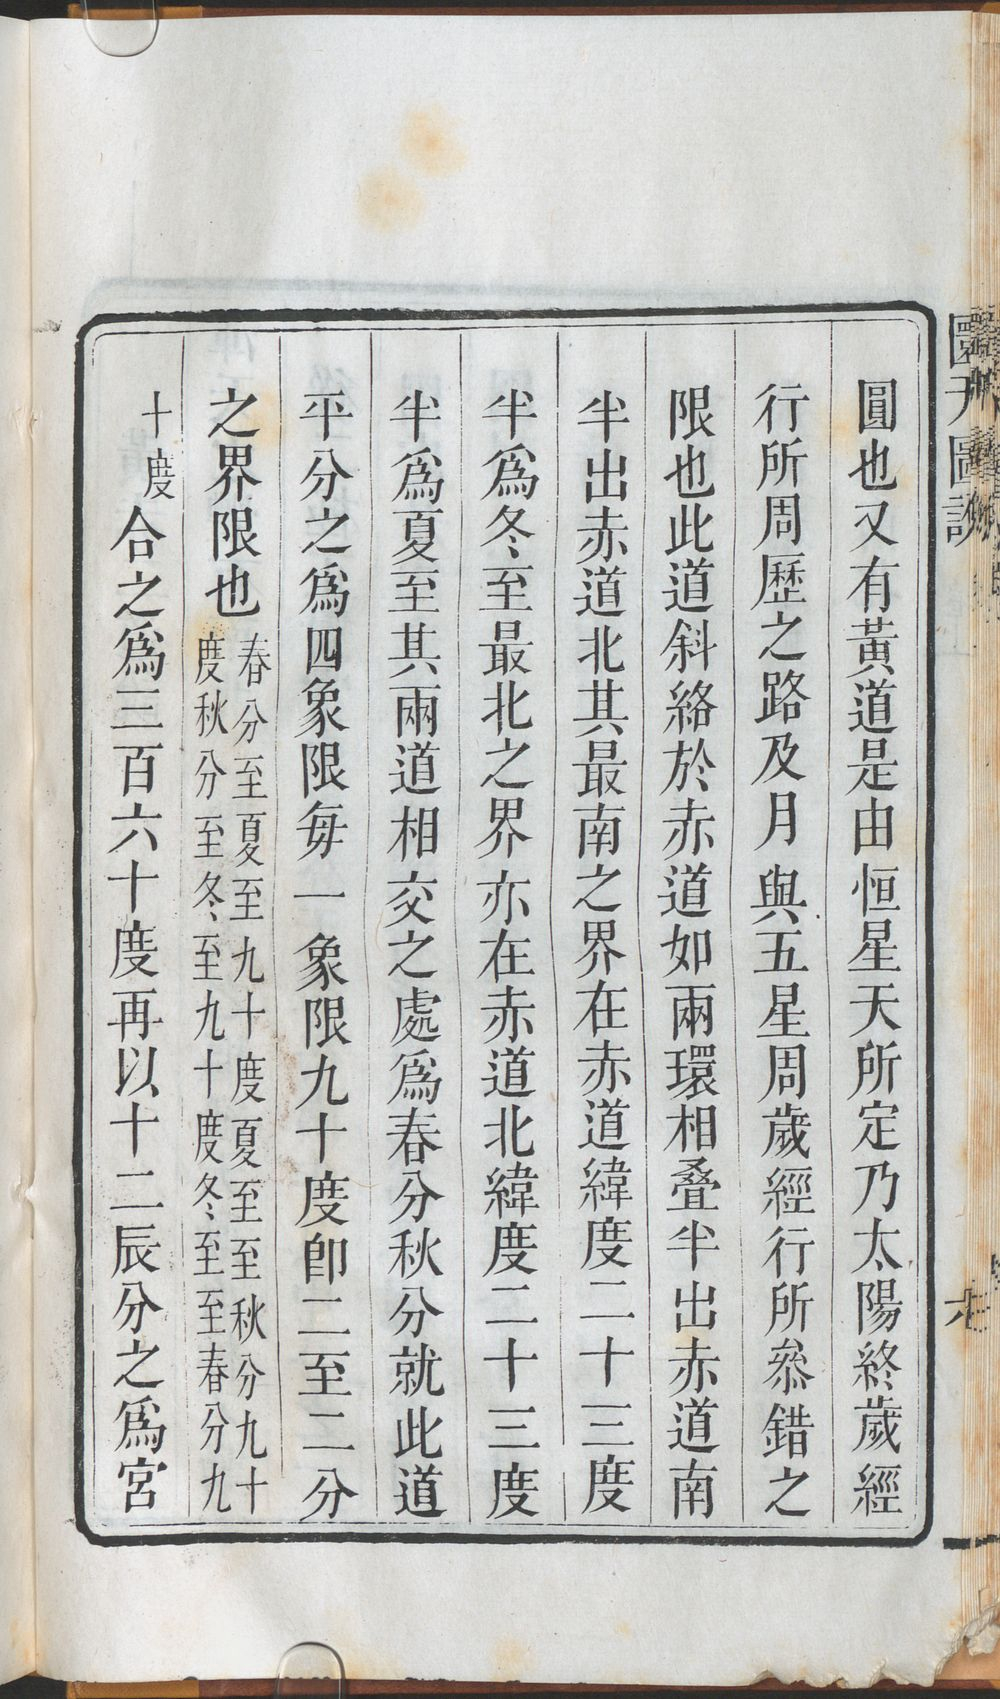 圓也又有黃道是由恒星天所定乃太陽終歲經
行所周歷之路及月與五星周歲經行所叅錯之
限也此道斜絡於赤道如兩環相疊半出赤道南
半出赤道北其最南之界在赤道緯度二十三度
半爲冬至最北之界亦在赤道北緯度二十三度
半爲夏至其兩道相交之處爲春分秋分就此道
平分之爲四象限每一象限九十度卽二至二分
之界限也
春分至夏至九十度夏至至秋分九十
度秋分至冬至九十度冬至至春分九
十度
合之爲三百六十度再以十二辰分之爲宮
圜天圖說
六